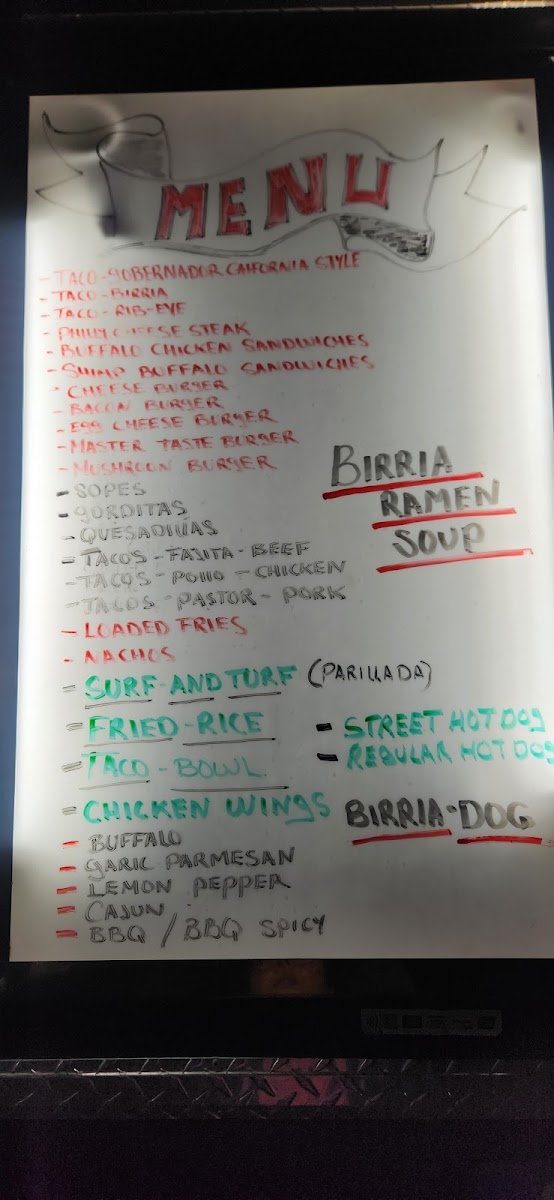 MENU
- TACO-GOBERNADOR CAIFORNIA STYLE
- TACO-BIRRIA
- TACO-RIB-EYE
- PHILLY CHEESE STEAK
- BUFFALO CHICKEN SANDWICHES
- SHIMP BUFFALO SANDWICHES
- CHEESE BURGER
- BACON BURGER
- EGG CHEESE BURGER
- MASTER TASTE BURGER
- MUSHROON BURGER
BIRRIA
RAMEN
SOUP
- SOPES
- GORDITAS
- QUESADILLAS
- TACOS-FAJITA-BEEF
- TACOS-POLLO-CHICKEN
- TACOS-PASTOR-PORK
- LOADED FRIES
- NACHOS
- SURF-AND TURF (PARILLADA)
- FRIED-RICE
- TACO-BOWL
- STREET HOT DOG
- REGULAR HOT DOG
- CHICKEN WINGS
BIRRIA-DOG
- BUFFALO
- GARIC PARMESAN
- LEMON PEPPER
- CAJUN
- BBQ / BBQ SPICY